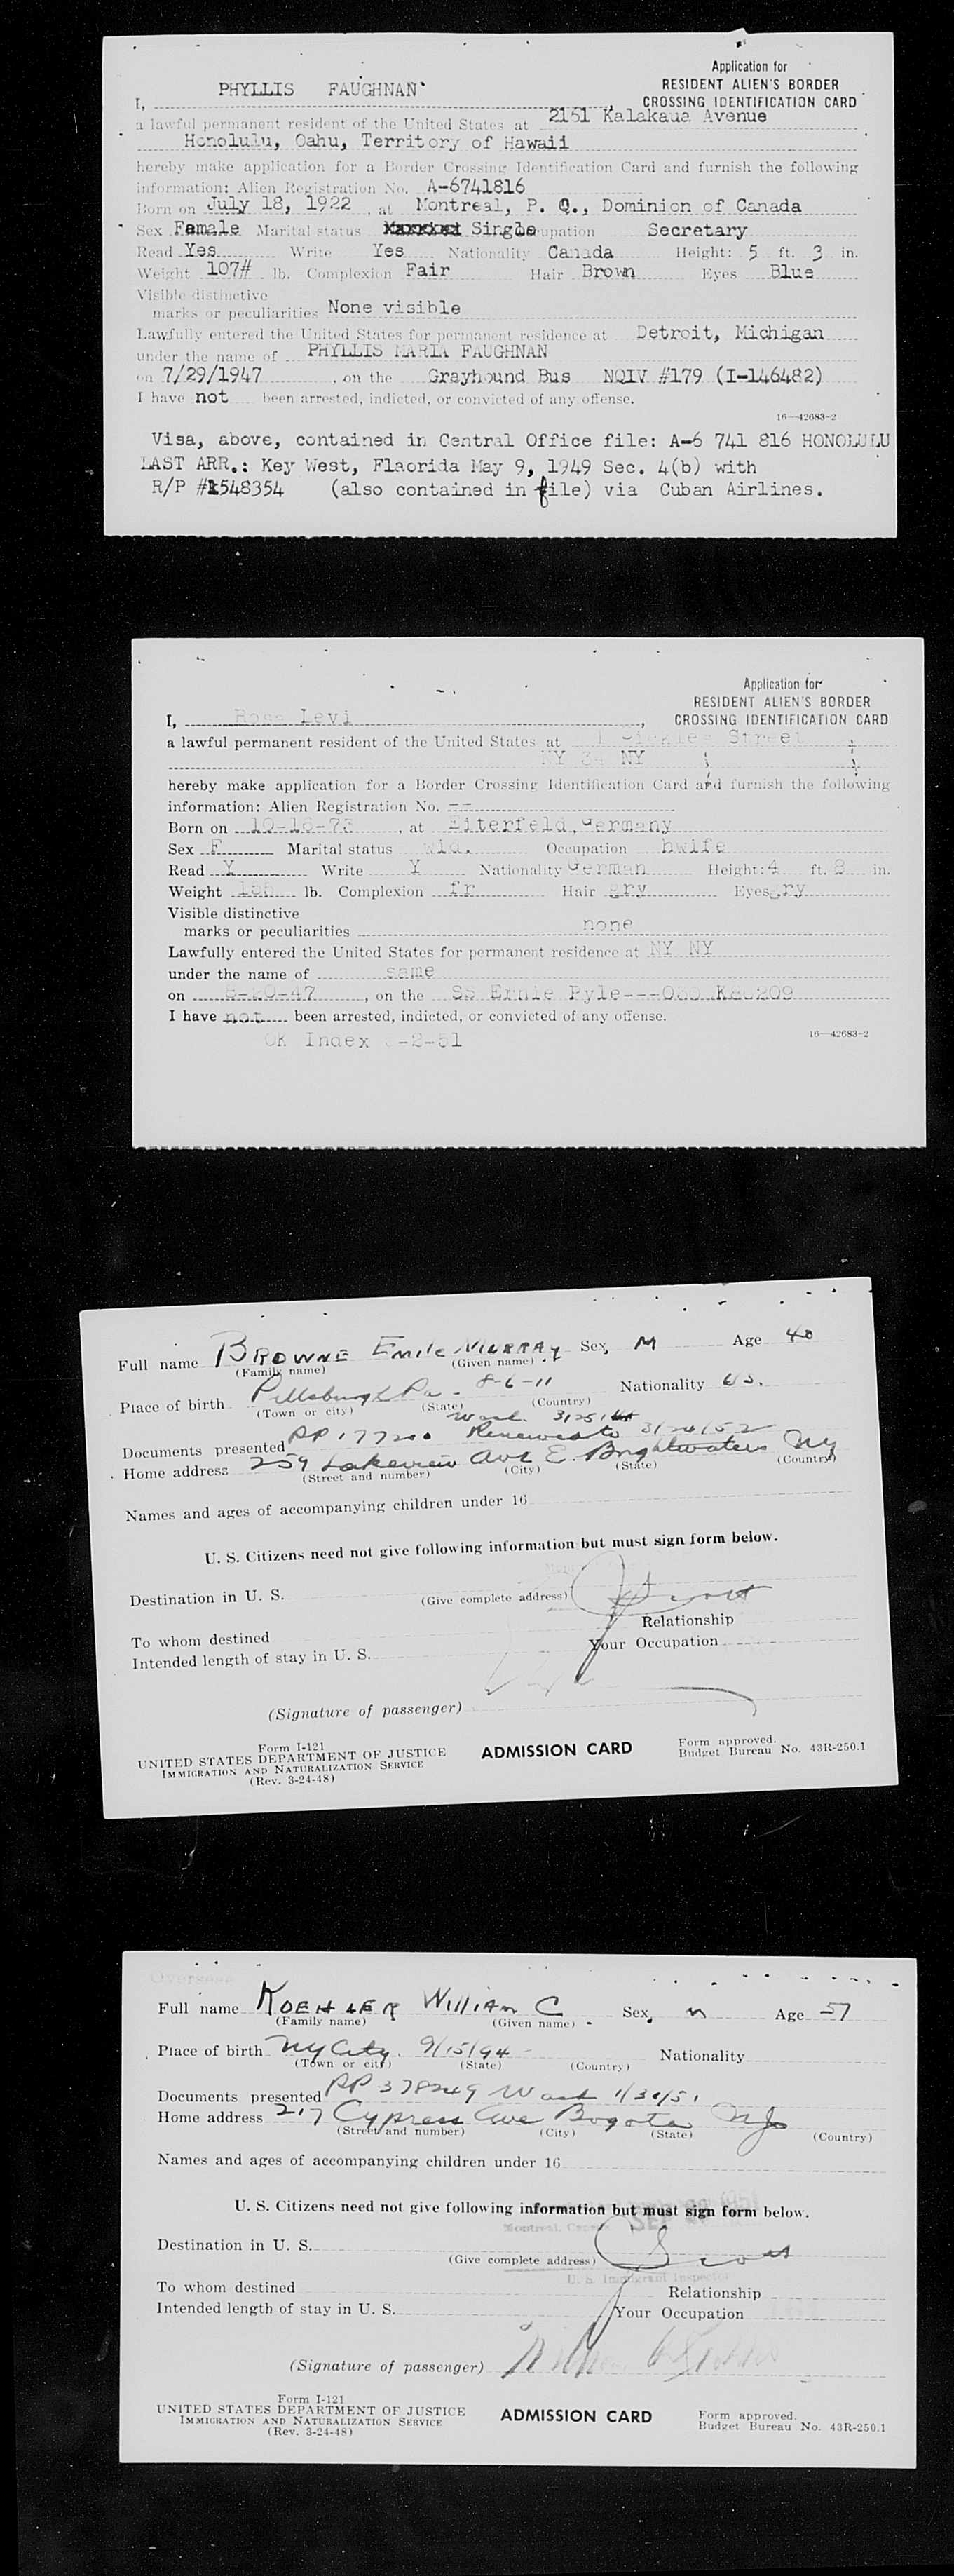 Application for
RESIDENT ALIEN'S BORDER
CROSSING IDENTIFICATION CARD
I, PHYLLIS FAUGHNAN,
a lawful permanent resident of the United States at 2151 Kalakaua Avenue
Honolulu, Oahu, Territory of Hawaii
hereby make application for a Border Crossing Identification Card and furnish the following
information: Alien Registration No. A-6741816
Born on July 18, 1922, at Montreal, P. Q., Dominion of Canada
Sex Female Marital status Single Occupation Secretary
Read Yes Write Yes Nationality Canada Height: 5 ft. 3 in.
Weight 107# lb. Complexion Fair Hair Brown Eyes Blue
Visible distinctive
marks or peculiarities None visible
Lawfully entered the United States for permanent residence at Detroit, Michigan
under the name of PHYLLIS MARIA FAUGHNAN
on 7/29/1947, on the Grayhound Bus NQIV #179 (I-146482)
I have not been arrested, indicted, or convicted of any offense.
16—42683-2
Visa, above, contained in Central Office file: A-6 741 816 HONOLULU
LAST ARR.: Key West, Flaorida May 9, 1949 Sec. 4(b) with
R/P #1548354 (also contained in file) via Cuban Airlines.
Application for
RESIDENT ALIEN'S BORDER
CROSSING IDENTIFICATION CARD
I, Rosa Levi,
a lawful permanent resident of the United States at Street
NY 34 NY
hereby make application for a Border Crossing Identification Card and furnish the following
information: Alien Registration No. --
Born on 10-16-73, at Eiterfeld, Germany
Sex F Marital status wid. Occupation hwife
Read Y Write Y Nationality German Height: 4 ft. 8 in.
Weight lb. Complexion fr Hair gry Eyes gry
Visible distinctive
marks or peculiarities none
Lawfully entered the United States for permanent residence at NY NY
under the name of same
on -20-47, on the SS Ernie Pyle---
I have not been arrested, indicted, or convicted of any offense.
16—42683-2
OK Index -2-51
Full name BROWNE Emile MURRAY Sex M Age 40
(Family name) (Given name)
Place of birth Pittsburgh Pa - 8-6-11 Nationality US.
(Town or city) (State) (Country)
Wash. 3/25/
Documents presented PP 177200 Renewed to 3/24/52
Home address 259 Lakeview Ave E. Brightwaters NY
(Street and number) (City) (State) (Country)
Names and ages of accompanying children under 16
U. S. Citizens need not give following information but must sign form below.
Destination in U. S.
(Give complete address)
To whom destined Relationship
Intended length of stay in U. S. Your Occupation
(Signature of passenger)
Form I-121
UNITED STATES DEPARTMENT OF JUSTICE
IMMIGRATION AND NATURALIZATION SERVICE
(Rev. 3-24-48)
ADMISSION CARD
Form approved.
Budget Bureau No. 43R-250.1
Overseas
Full name KOEHLER William C Sex M Age 57
(Family name) (Given name)
Place of birth NY City. 9/15/94 Nationality
(Town or city) (State) (Country)
Documents presented PP 378249 Wash 1/30/51
Home address 217 Cypress Ave Bogota NJ
(Street and number) (City) (State) (Country)
Names and ages of accompanying children under 16
U. S. Citizens need not give following information but must sign form below.
Montreal, Canada SEP 1951
Destination in U. S.
(Give complete address)
U. S. Immigrant Inspector
To whom destined Relationship
Intended length of stay in U. S. Your Occupation
(Signature of passenger)
Form I-121
UNITED STATES DEPARTMENT OF JUSTICE
IMMIGRATION AND NATURALIZATION SERVICE
(Rev. 3-24-48)
ADMISSION CARD
Form approved.
Budget Bureau No. 43R-250.1